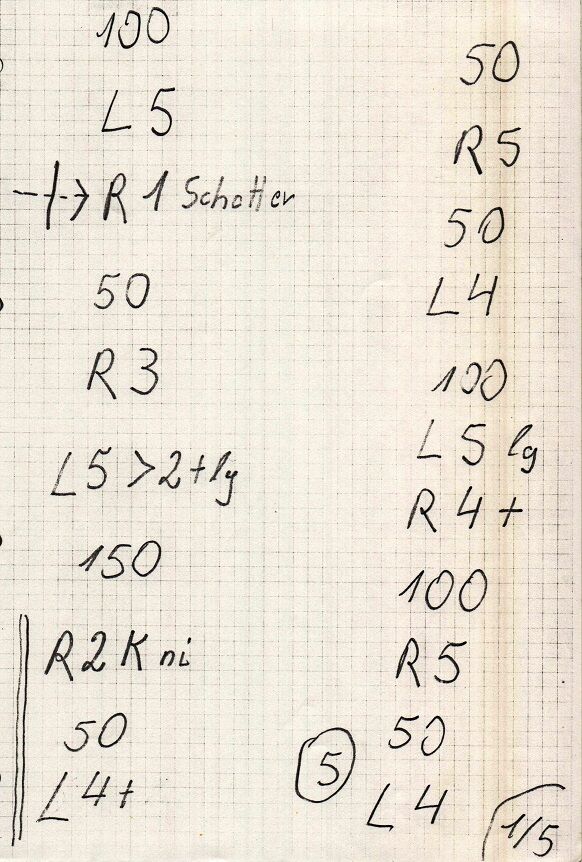 100
L 5
R 1 Schotter
50
R 3
L 5 > 2 + lg
150
R 2 K ni
50
L 4 +
50
R 5
50
L 4
100
L 5 lg
R 4 +
100
R 5
50
L 4
5
1/5